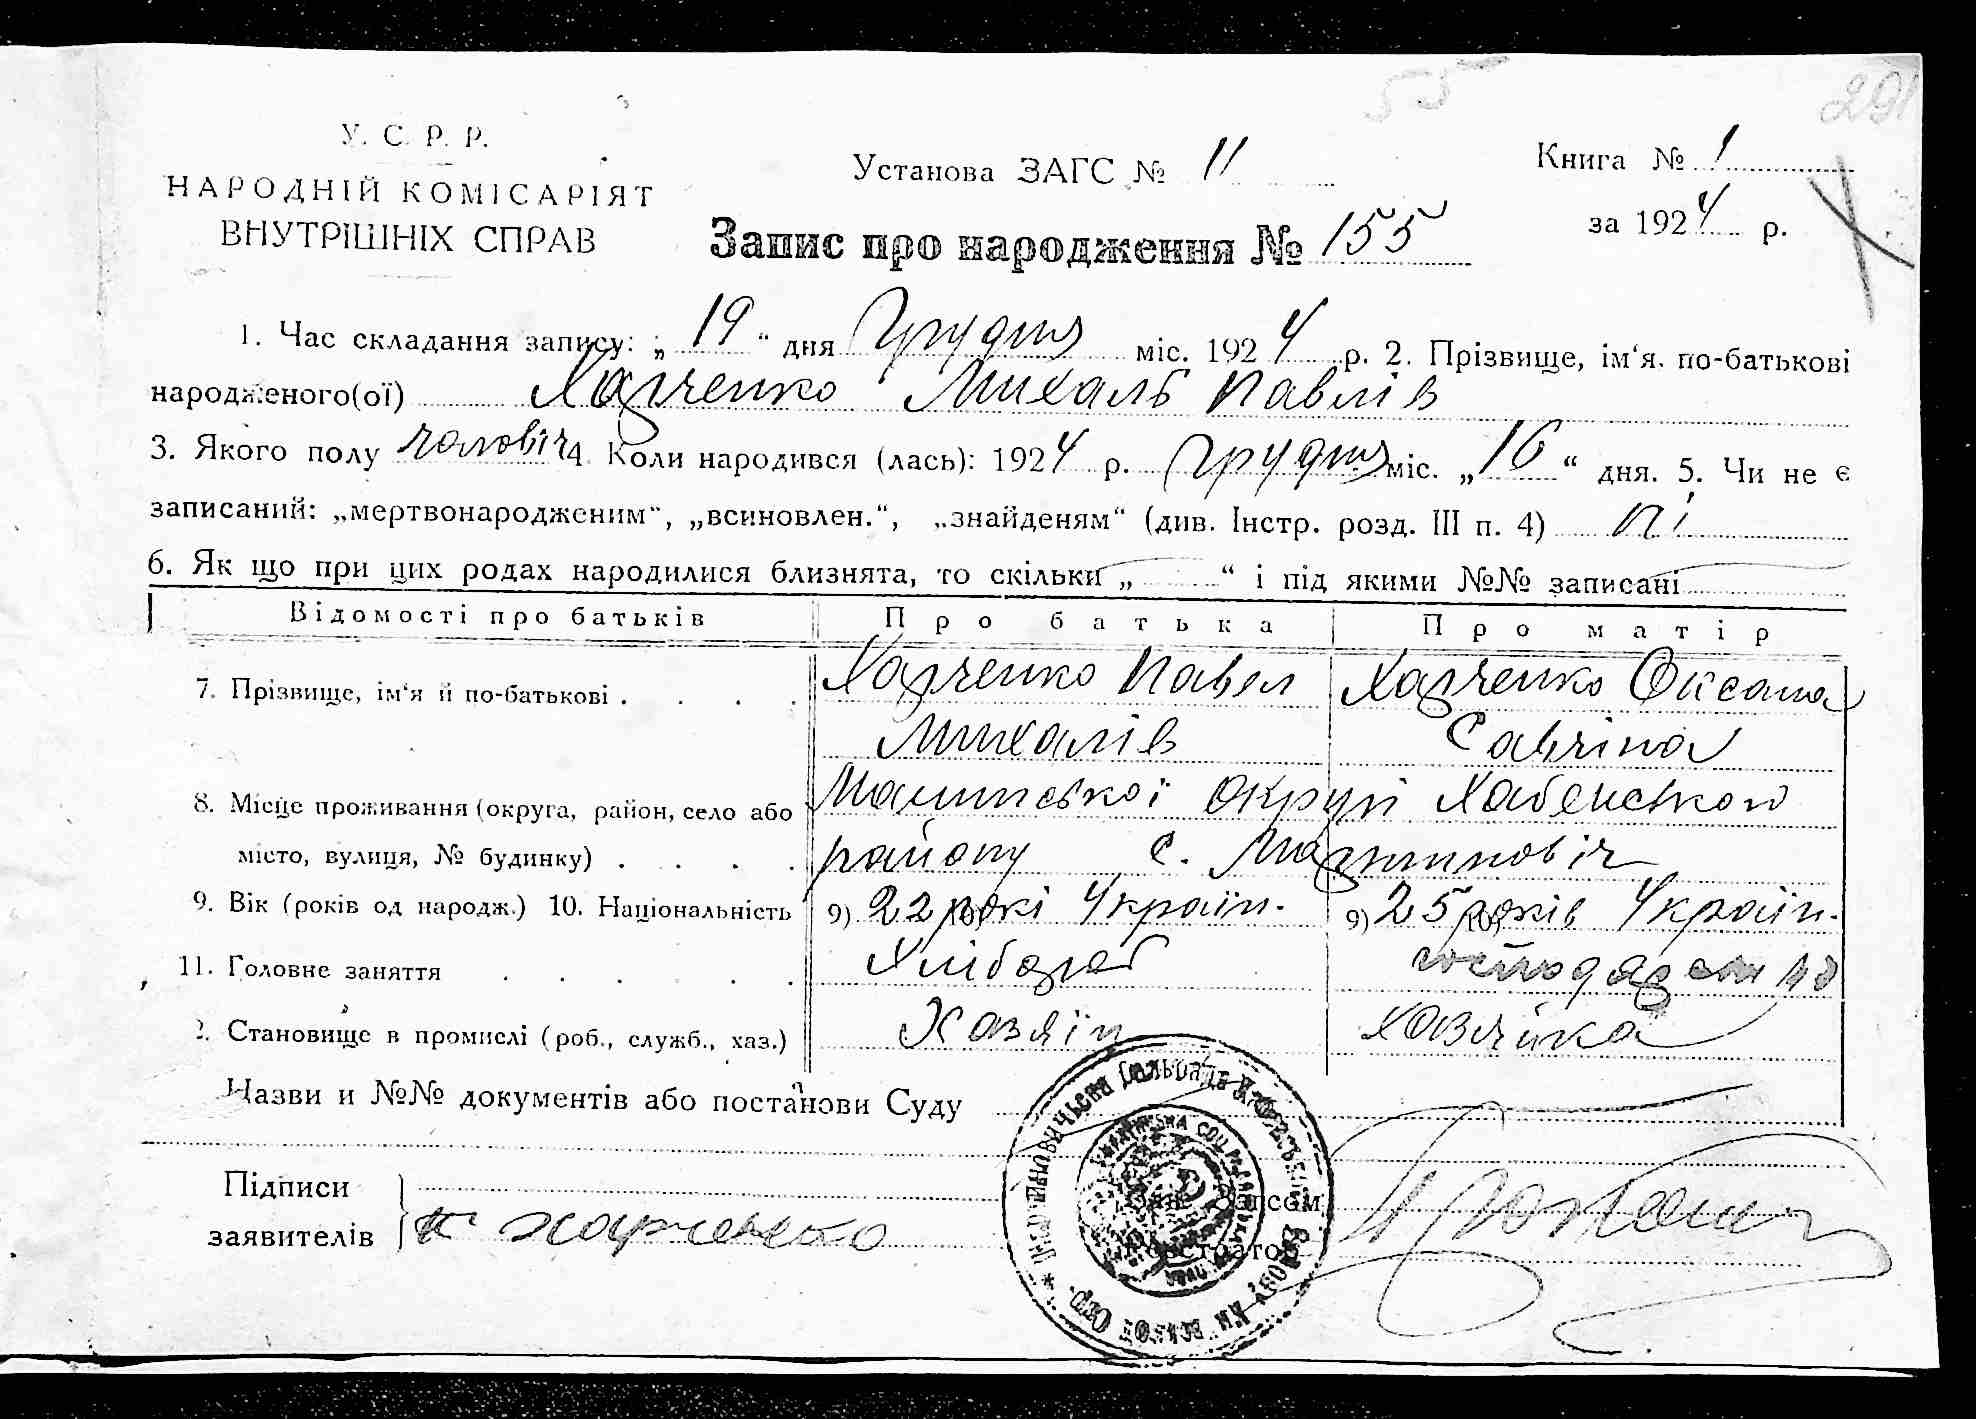 55
291
У. С. Р. Р.
НАРОДНІЙ КОМІСАРІЯТ
ВНУТРІШНІХ СПРАВ
Установа ЗАГС № 11
Книга № 1
за 1924 р.
Запис про народження № 155
1. Час складання запису: „ 19 “ дня Грудня міс. 1924 р. 2. Прізвище, ім‘я, по-батькові
народженого(ої) Харченко Михаль Павлів
3. Якого полу чоловіч 4. Коли народився (лась): 1924 р. Грудня міс. „ 16 “ дня. 5. Чи не є
записаний: „мертвонародженим“, „всиновлен.“, „знайденям“ (див. Інстр. розд. III п. 4) ні
6. Як що при цих родах народилися близнята, то скільки „ “ і під якими №№ записані
Відомості про батьків Про батька Про матір
7. Прізвище, ім‘я й по-батькові . . . . Харченко Павел Харченко Оксана
Михалів Савчіна
8. Місце проживання (округа, район, село або Малинської округи Хабенського
місто, вулиця, № будинку) . . . . району с. Мартиновіч
9. Вік (років од народж.) 10. Національність 9) 22 рокі 10) Україн. 9) 25 років 10) Україн.
11. Головне заняття . . . . . Хлібороб
2. Становище в промислі (роб., служб., хаз.) Хазяїн хазяйка
Назви и №№ документів або постанови Суду
Підписи
заявителів П Харченко
Зав. Загсом
Реєстратор
УКРАЇНСЬКА СОЦ.